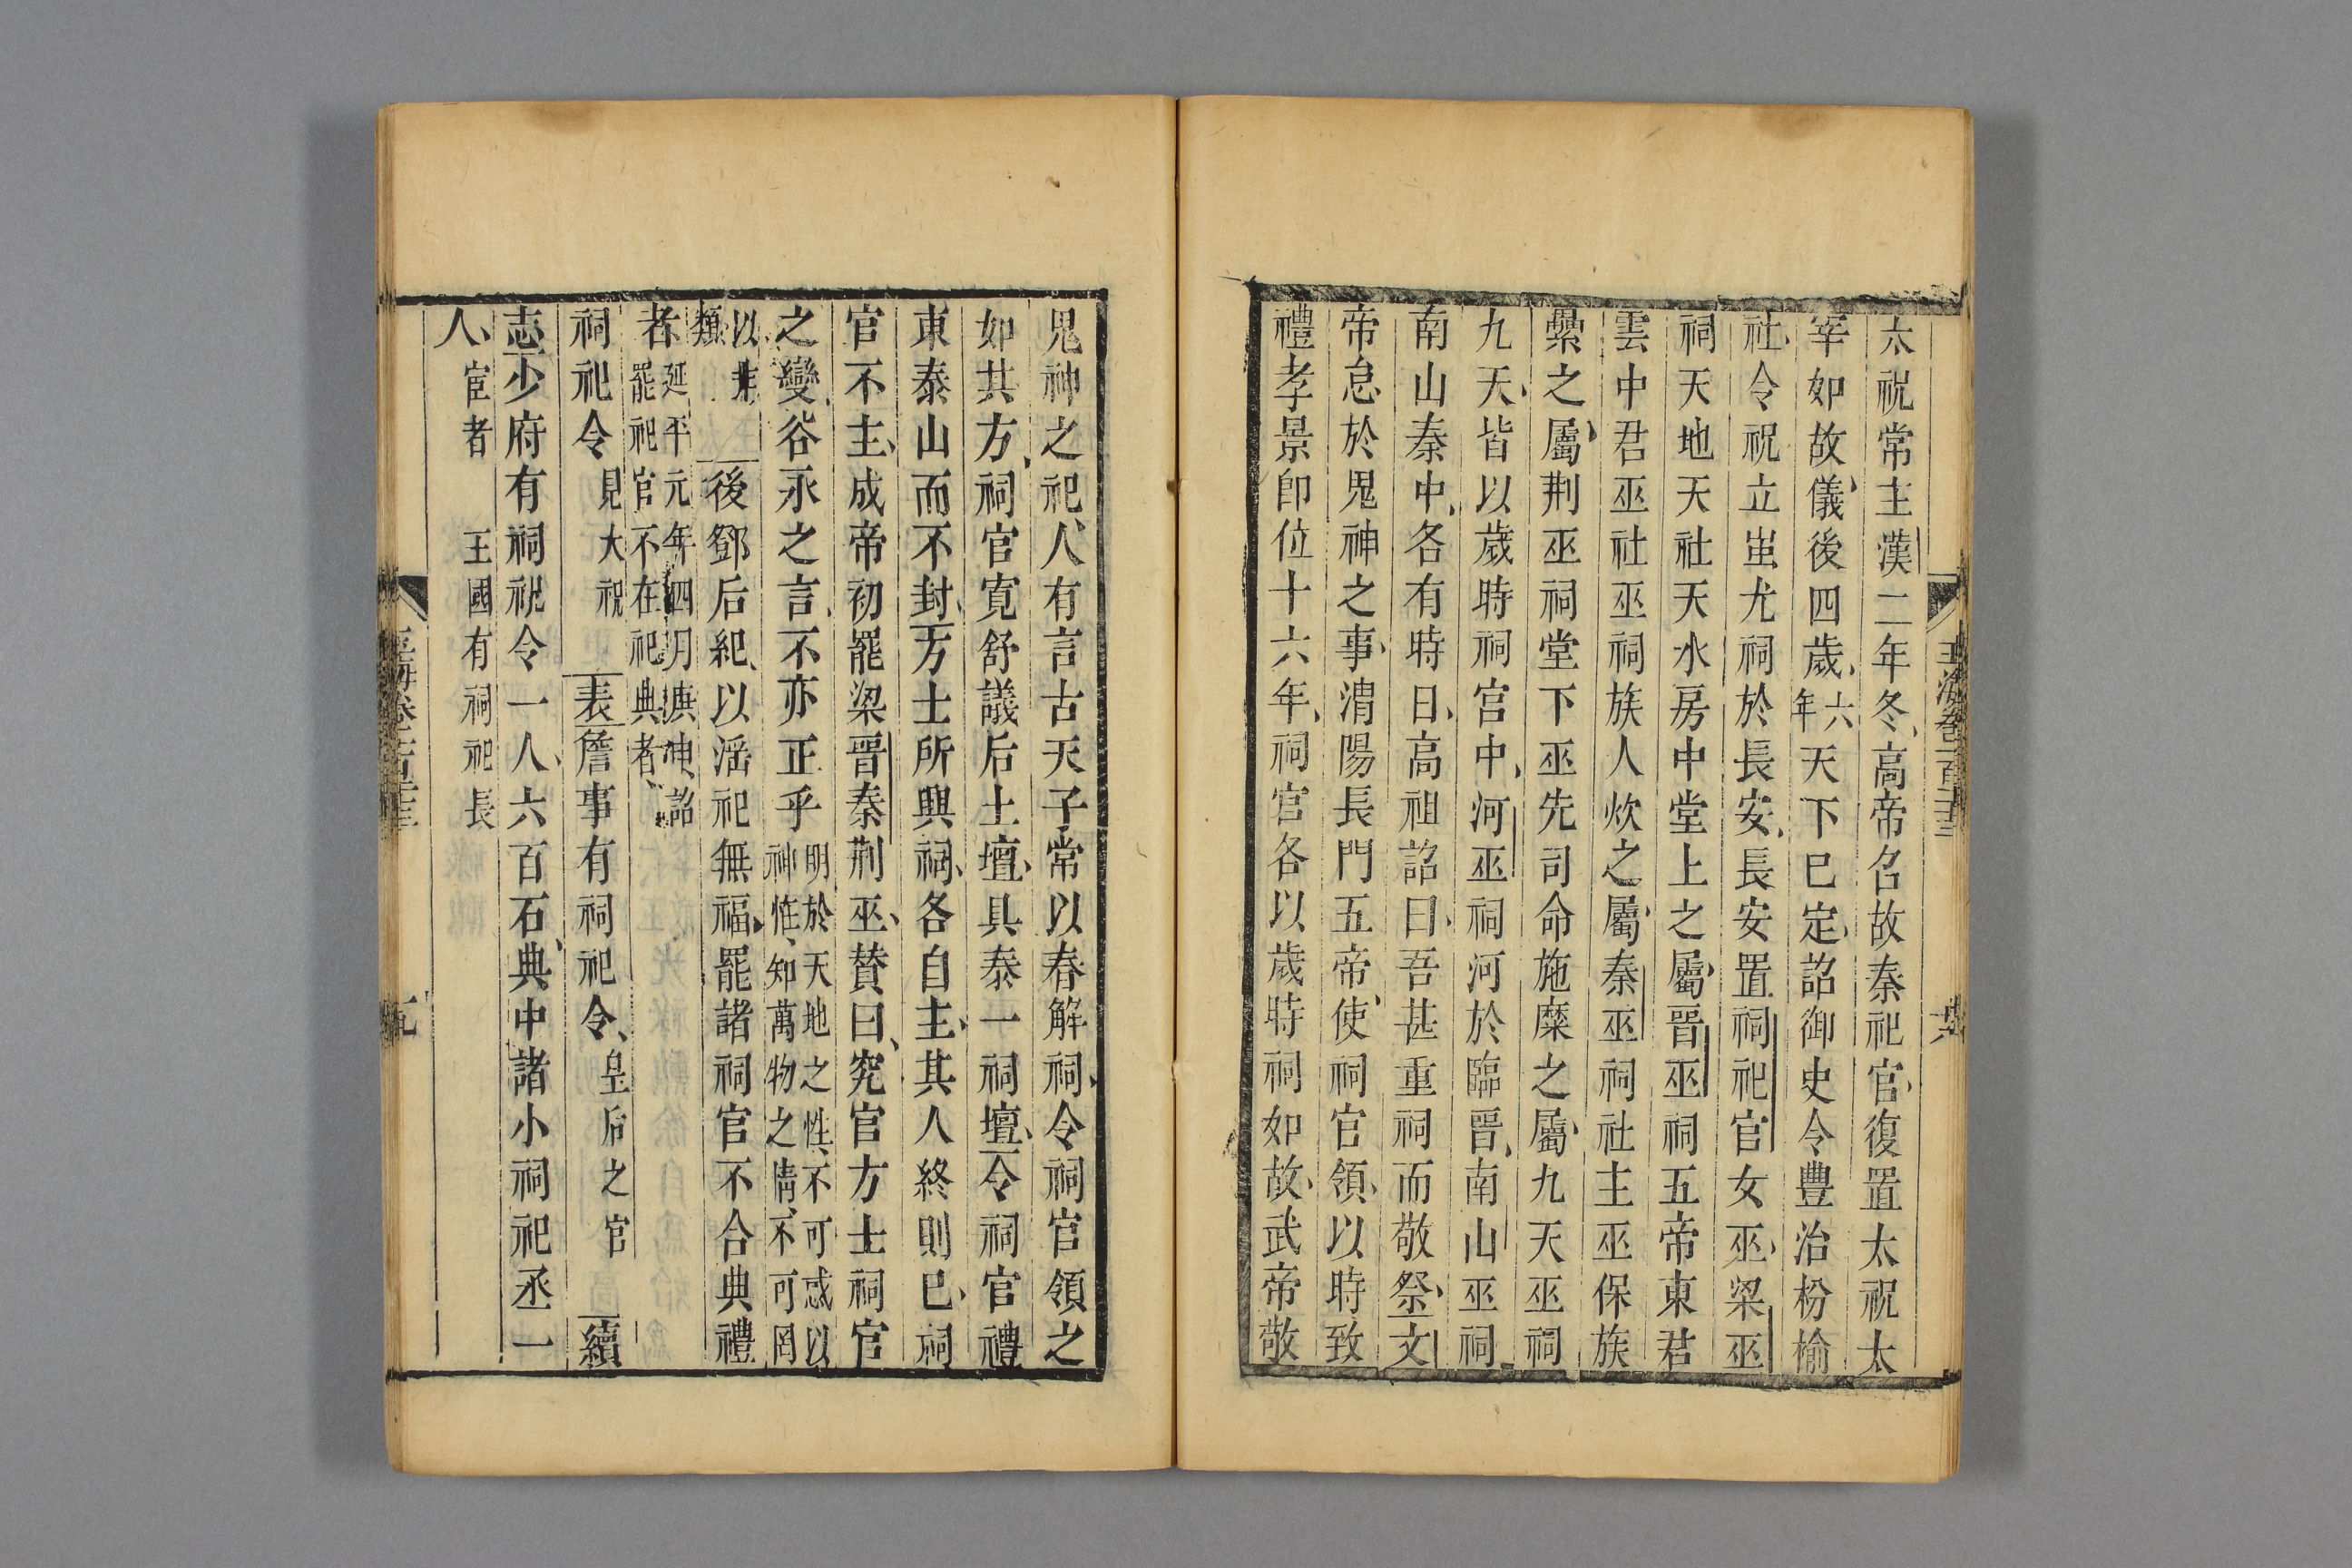 太祝常主漢二年冬高帝召故秦祀官復置太祝太
宰如故儀後四歲六年天下已定詔御史令豐治枌榆
社令祝立蚩尤祠於長安長安置祠祀官女巫梁巫
祠天地天社天水房中堂上之屬晉巫祠五帝東君
雲中君巫社巫祠族人炊之屬秦巫祠社主巫保族
纍之屬荆巫祠堂下巫先司命施糜之屬九天巫祠
九天皆以歲時祠宮中河巫祠河於臨晉南山巫祠
南山秦中各有時日高祖詔曰吾甚重祠而敬祭文
帝怠於鬼神之事渭陽長門五帝使祠官領以時致
禮孝景卽位十六年祠官各以歲時祠如故武帝敬
鬼神之祀人有言古天子常以春解祠令祠官領之
如其方祠官寬舒議后土壇具泰一祠壇令祠官禮
東泰山而不封方士所興祠各自主其人終則已祠
官不主成帝初罷梁晉秦荆巫賛曰究官方士祠官
之變谷永之言不亦正乎明於天地之性不可惑以
神怪知萬物之情不可罔
以非
類
後鄧后紀以淫祀無福罷諸祠官不合典禮
者延平元年四月庚申詔
罷祀官不在祀典者
祠祀令見大祝
表詹事有祠祀令皇后之官
續
志少府有祠祀令一人六百石典中諸小祠祀丞一
人宦者
王國有祠祀長
玉海卷一百二十三